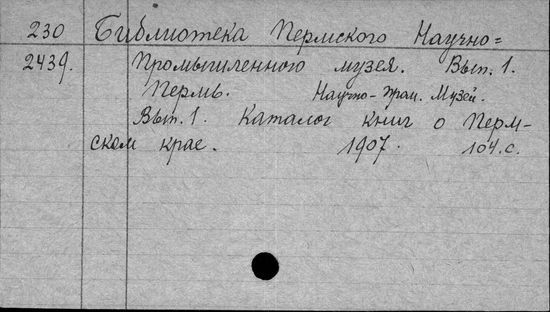 230 Библиотека Пермского Научно=
2439. Промышленного музея. Вып. 1.
Пермь. Научно-Пром. Музей.
Вып. 1. Каталог книг о Перм-
ском крае. 1907. 104 с.